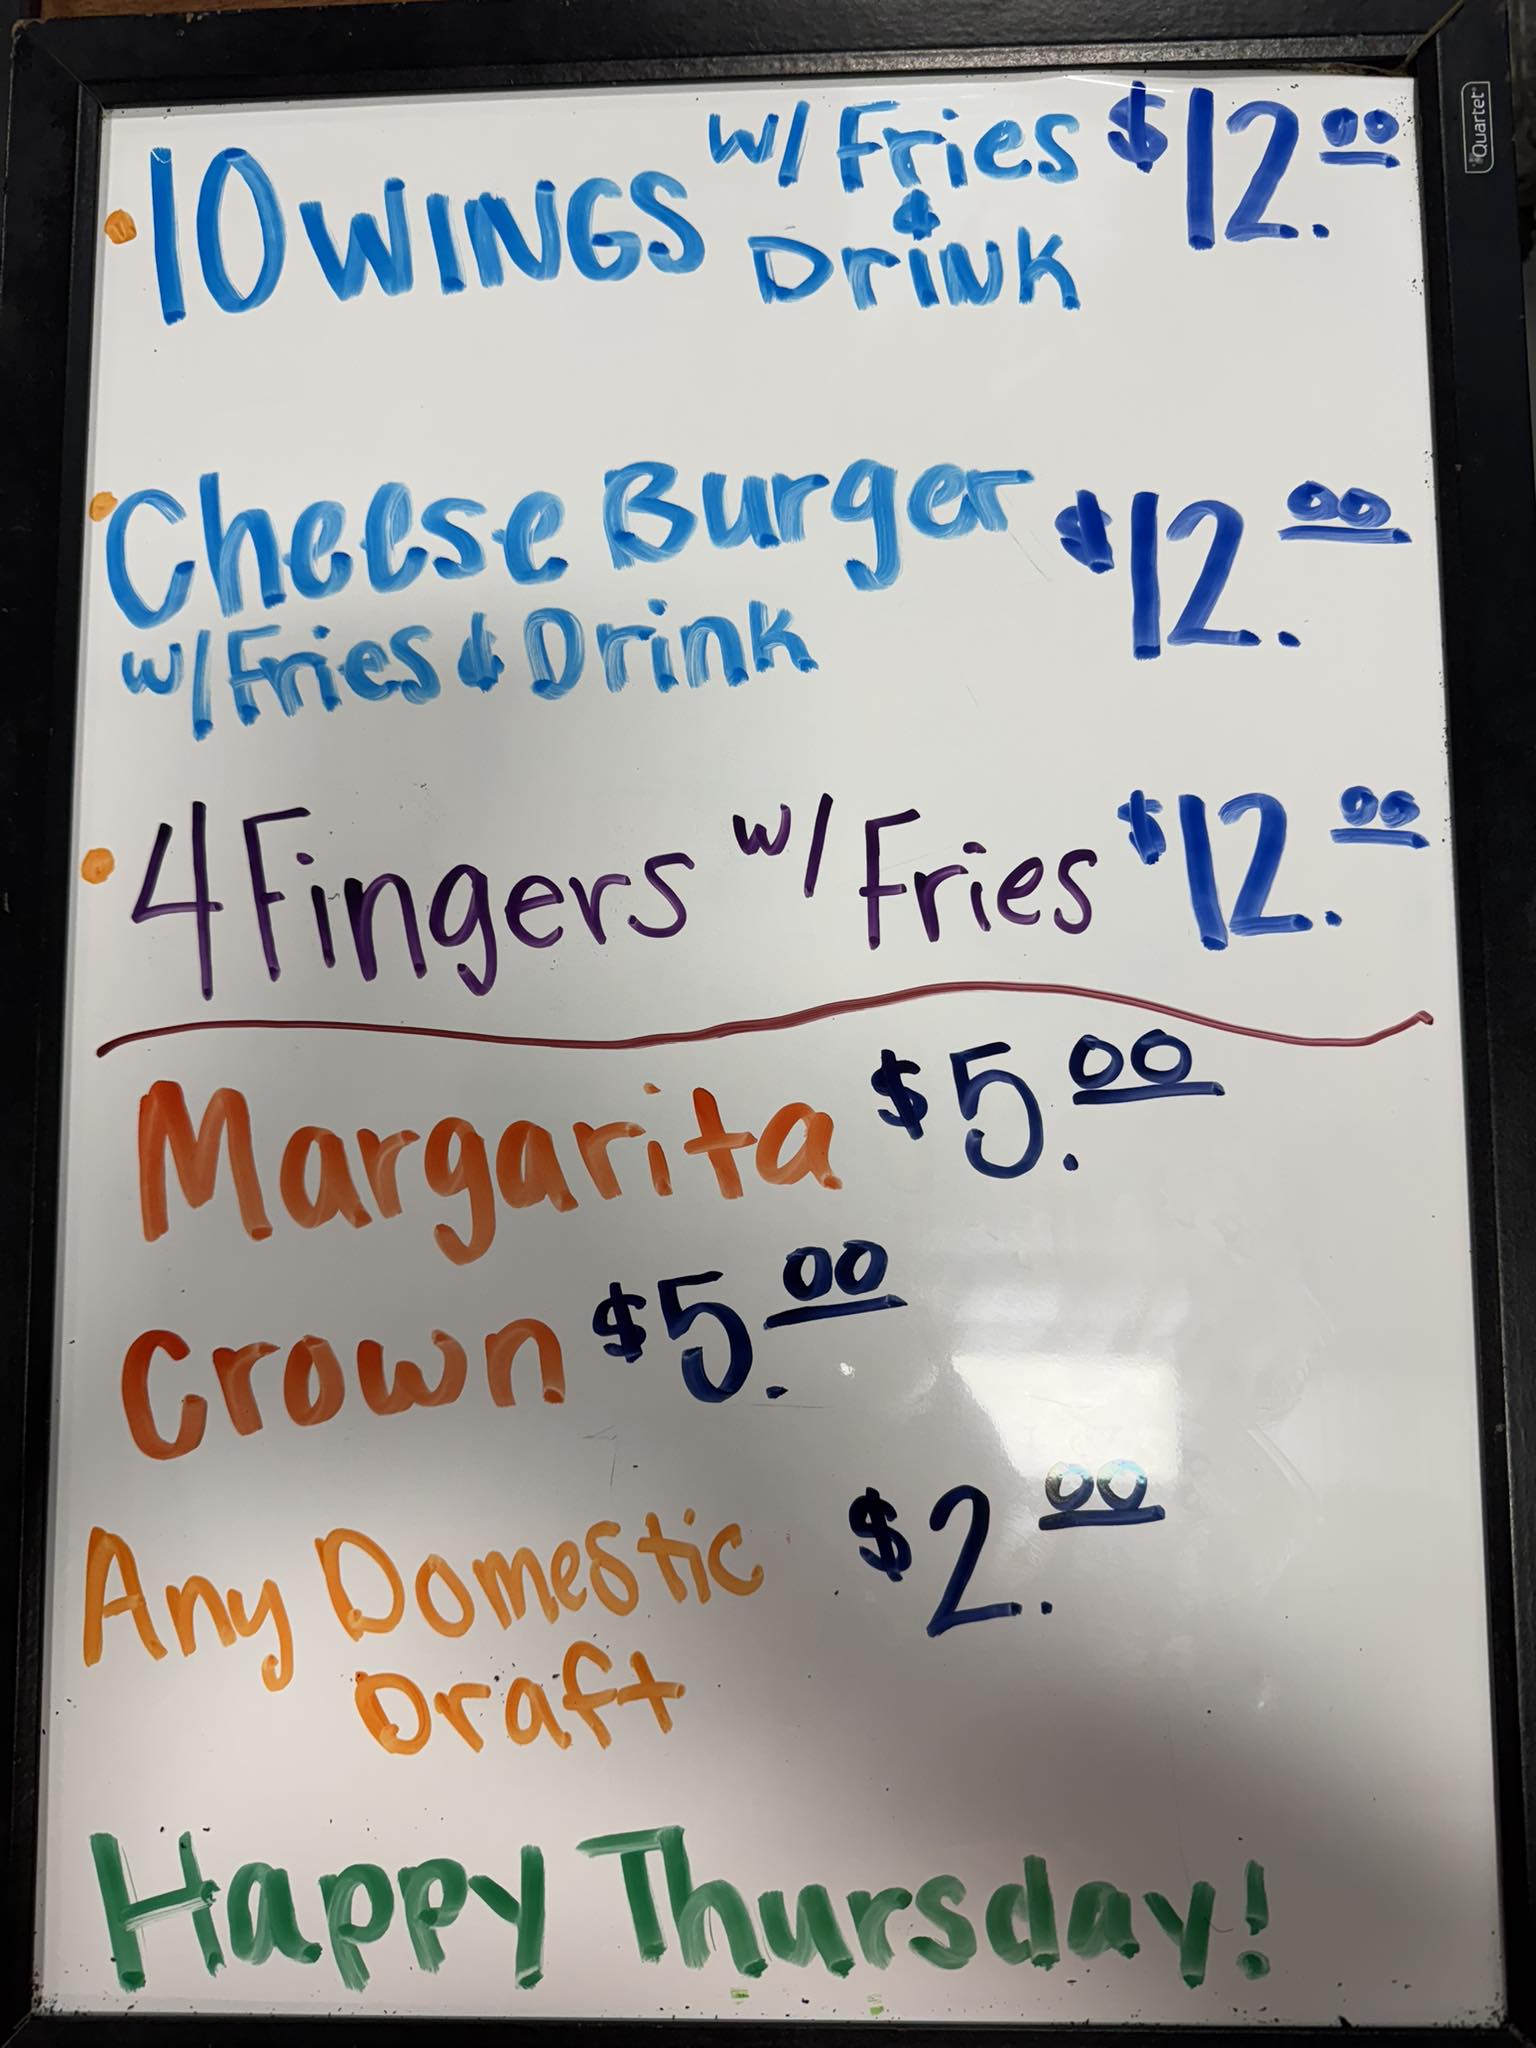 Quartet
• 10 WINGS w/ Fries & Drink $12.00
• Cheese Burger $12.00
w/ Fries & Drink
• 4 Fingers w/ Fries $12.00
Margarita $5.00
Crown $5.00
Any Domestic $2.00
Draft
Happy Thursday!